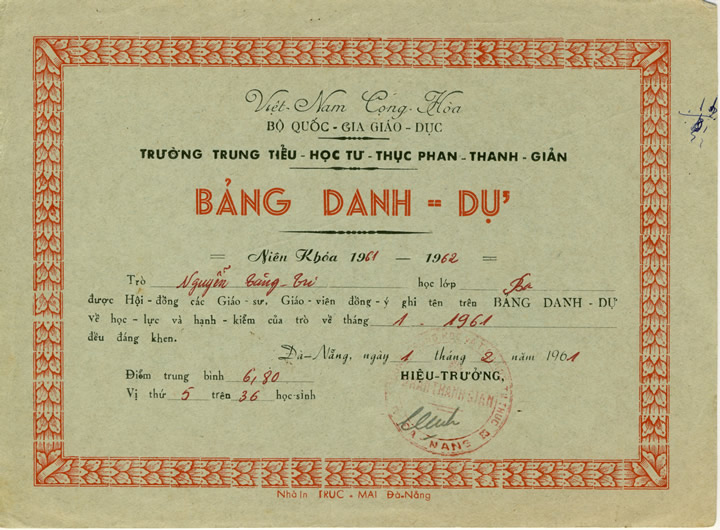 Việt-Nam Cộng-Hòa
BỘ QUỐC-GIA GIÁO-DỤC
TRƯỜNG TRUNG TIỂU-HỌC TƯ-THỤC PHAN-THANH-GIẢN
BẢNG DANH-DỰ
Niên Khóa 1961 — 1962
Trò Nguyễn Tăng-Tư học lớp Ba
được Hội-đồng các Giáo-sư, Giáo-viên đồng-ý ghi tên trên BẢNG DANH-DỰ
về học-lực và hạnh-kiểm của trò về tháng 1-1961
đều đáng khen.
Đà-Nẵng, ngày 1 tháng 2 năm 1961
Điểm trung bình 6,80 HIỆU-TRƯỞNG,
Vị thứ 5 trên 36 học-sinh
PHAN THANH GIẢN
ĐÀ NẴNG
Nhà In TRÚC-MAI Đà-Nẵng